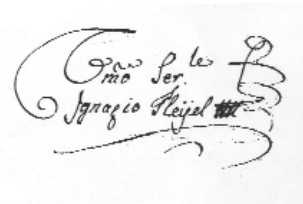 Umo Ser.te
Ignazio Pleijel